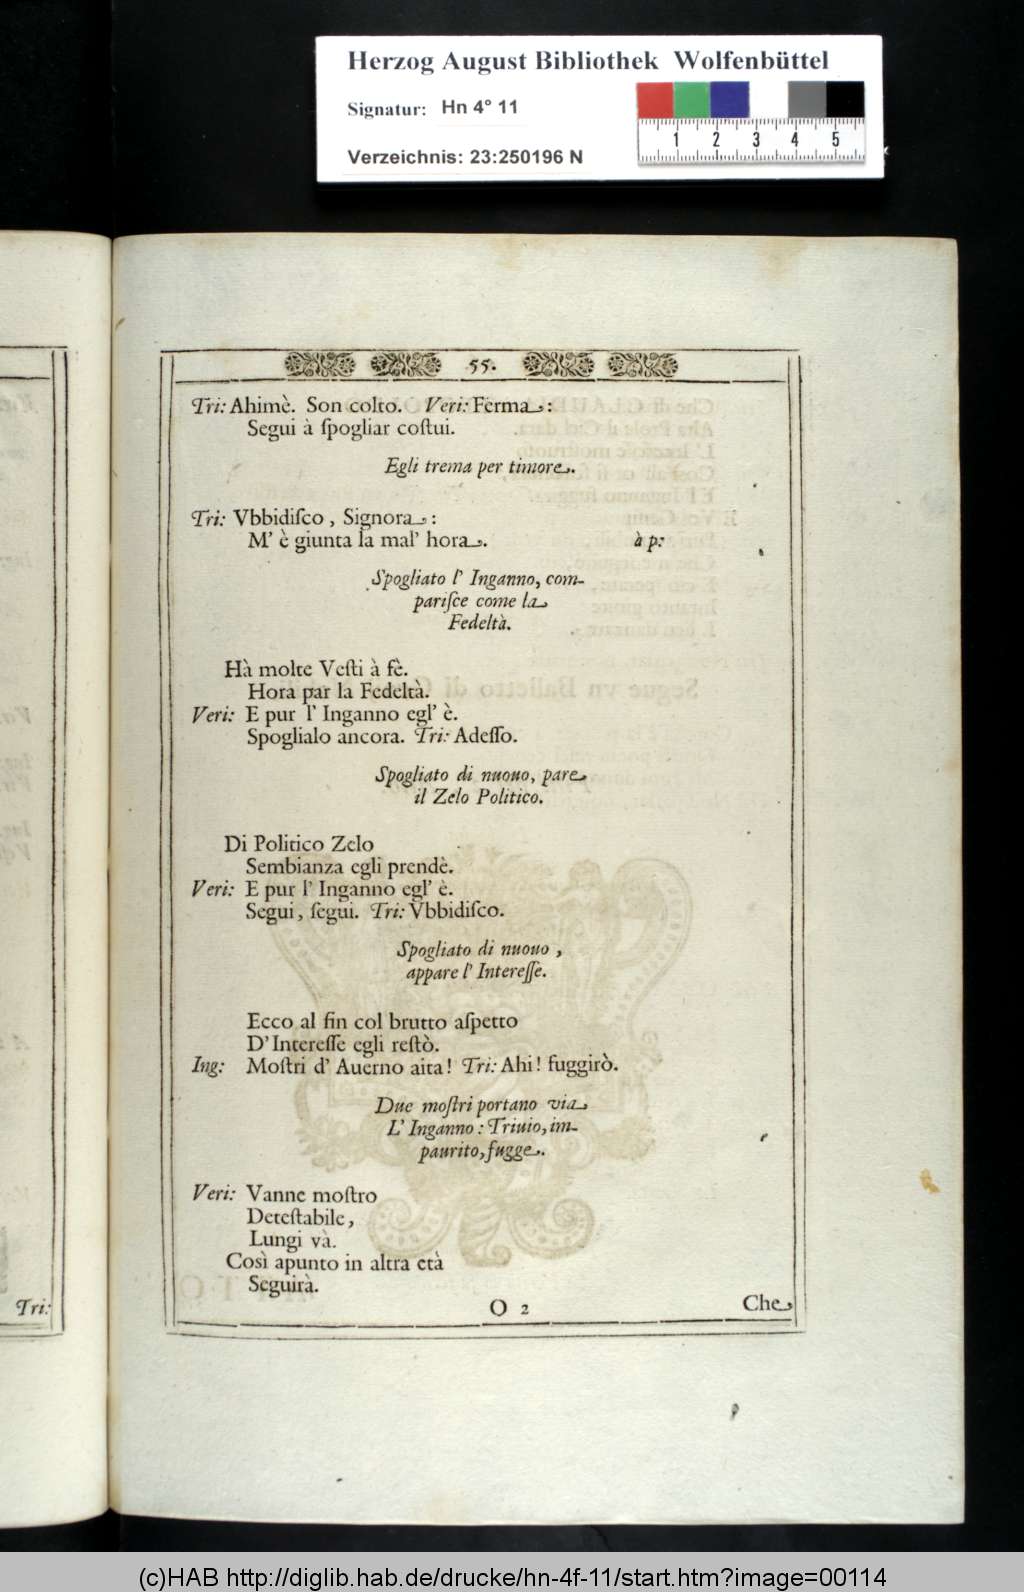 Herzog August Bibliothek Wolfenbüttel
Signatur: Hn 4° 11
Verzeichnis: 23:250196 N
1 2 3 4 5
55.
Tri: Ahimè. Son colto. Veri: Ferma:
Segui à ſpogliar coſtui.
Egli trema per timore.
Tri: Vbbidiſco, Signora:
M' è giunta la mal' hora. à p:
Spogliato l' Inganno, com-
pariſce come la
Fedeltà.
Hà molte Veſti à fè.
Hora par la Fedeltà.
Veri: E pur l' Inganno egl' è.
Spoglialo ancora. Tri: Adeſſo.
Spogliato di nuouo, pare
il Zelo Politico.
Di Politico Zelo
Sembianza egli prendè.
Veri: E pur l' Inganno egl' è.
Segui, ſegui. Tri: Vbbidiſco.
Spogliato di nuouo,
appare l' Intereſſe.
Ecco al fin col brutto aſpetto
D' Intereſſe egli reſtò.
Ing: Moſtri d' Auerno aita! Tri: Ahi! fuggirò.
Due moſtri portano via
L' Inganno: Triuio, im-
paurito, fugge.
Veri: Vanne moſtro
Deteſtabile,
Lungi và.
Così apunto in altra età
Seguirà.
Tri:
O 2 Che
(c)HAB http://diglib.hab.de/drucke/hn-4f-11/start.htm?image=00114